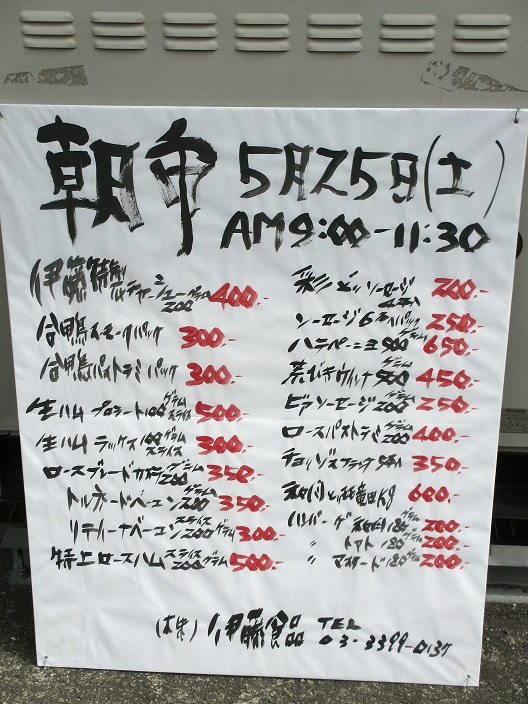 朝市 5月25日(土)
AM9:00-11:30
伊藤特製チャーシュー200グラム 400.-
合鴨スモークパック 300.-
合鴨パストラミパック 300.-
生ハム プロシュート100グラムスライス 500.-
生ハム ラックス100グラムスライス 300.-
ロースブレード 200グラム 350.-
トルネードベーコン200グラム 350.-
リティーナベーコン200グラムスライス 300.-
特上ロースハム200グラムスライス 500.-
ソーセージ 200.-
ソーセージ6本パック 250.-
ハラペーニョ500グラム 650.-
荒びきウインナ500グラム 450.-
ビアソーセージ200グラム 250.-
ロースパストラミ200グラム 400.-
チョリソ 5本入 350.-
1kg 600.-
ハンバーグ 和風180グラム 200.-
〃 トマト180グラム 200.-
〃 マスタード180グラム 200.-
(株)伊藤食品 TEL
03-3399-0137